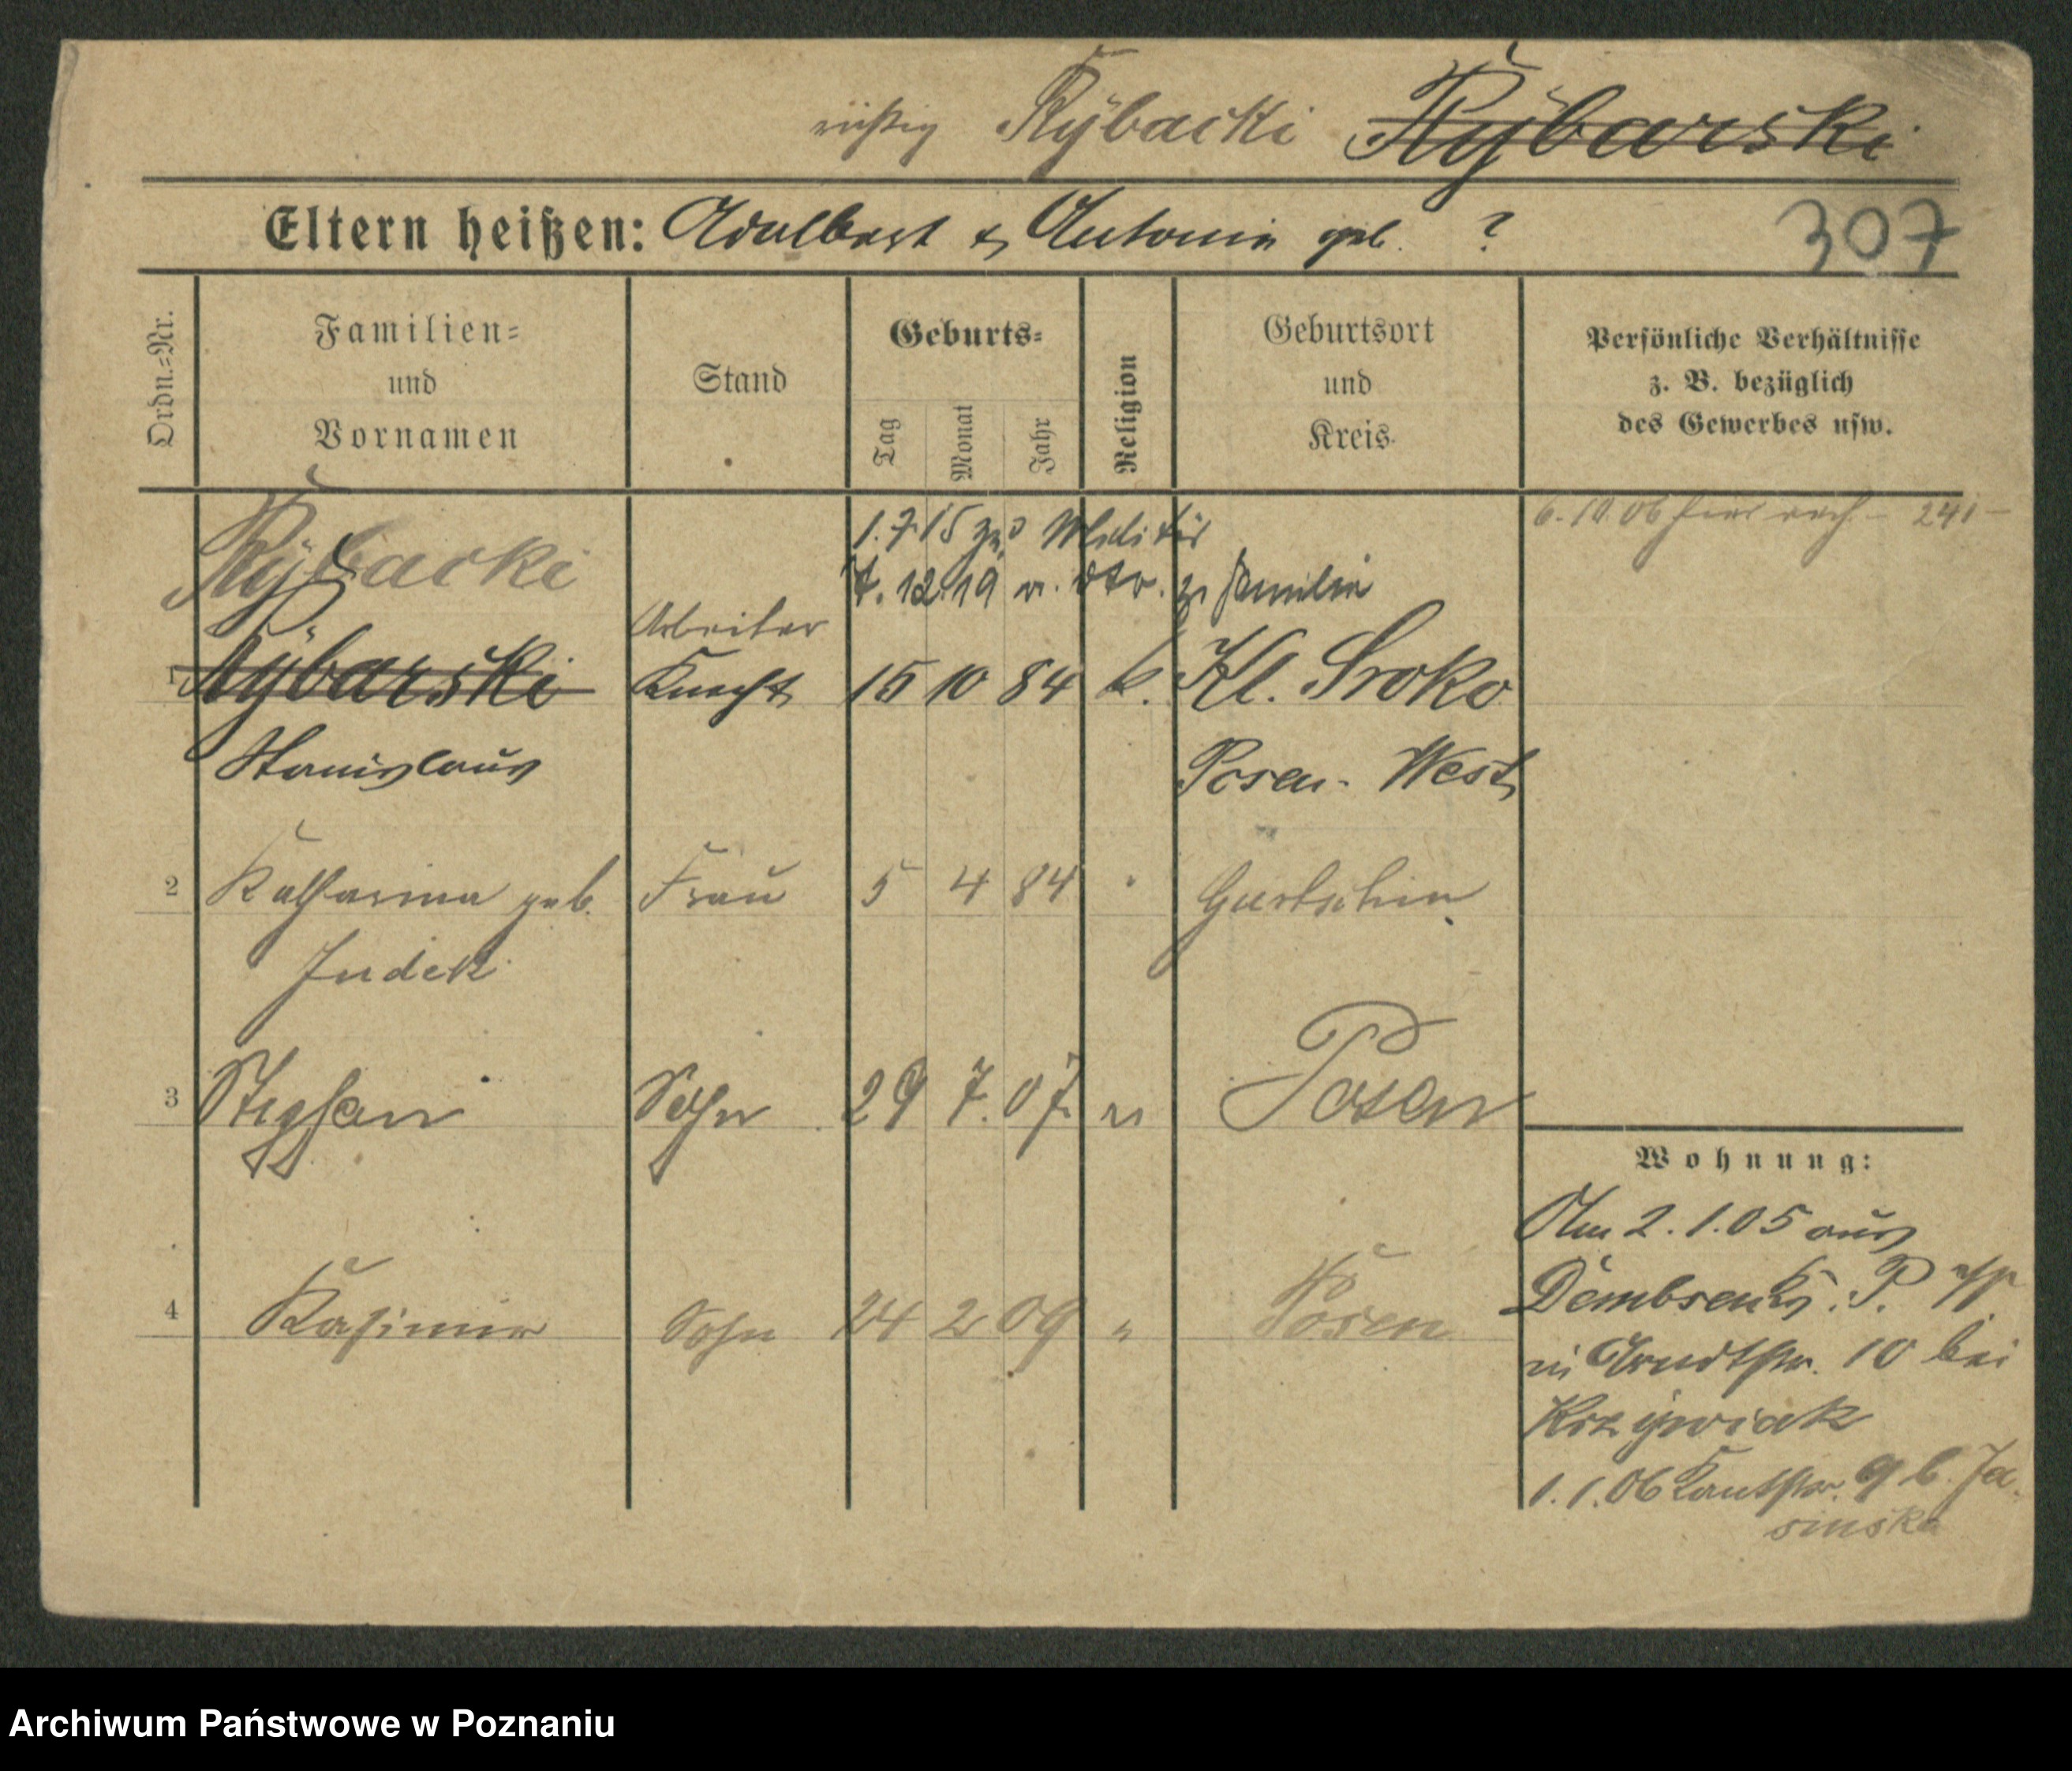 richtig Rybacki Rybarski
Eltern heißen: Adalbert & Antonie geb. ?
307
Ordn.=Nr.
Familien=
und
Vornamen
Stand
Geburts=
Tag
Monat
Jahr
Religion
Geburtsort
und
Kreis
Persönliche Verhältnisse
z. B. bezüglich
des Gewerbes usw.
6.10.06 241
Rybacki
1.7.15 z. Militär
12.19 v. dto. z. Familie
Arbeiter
1 Rybarski Knecht 15 10 84 k. Kl. Sroko
Stanislaus Posen-West
2 Katharina geb. Frau 5 4 84 " Gurtschin
Judek
3 Stephan Sohn 29 7. 07. " Posen
4 Kasimir Sohn 24 2 09 " Posen
Wohnung:
Am 2.1.05 aus
Dembsen Kr. P.
in Arndtstr. 10 bei
Krzywiak
1.1.06 Kantstr. 9 b. Ja-
sinska
Archiwum Państwowe w Poznaniu